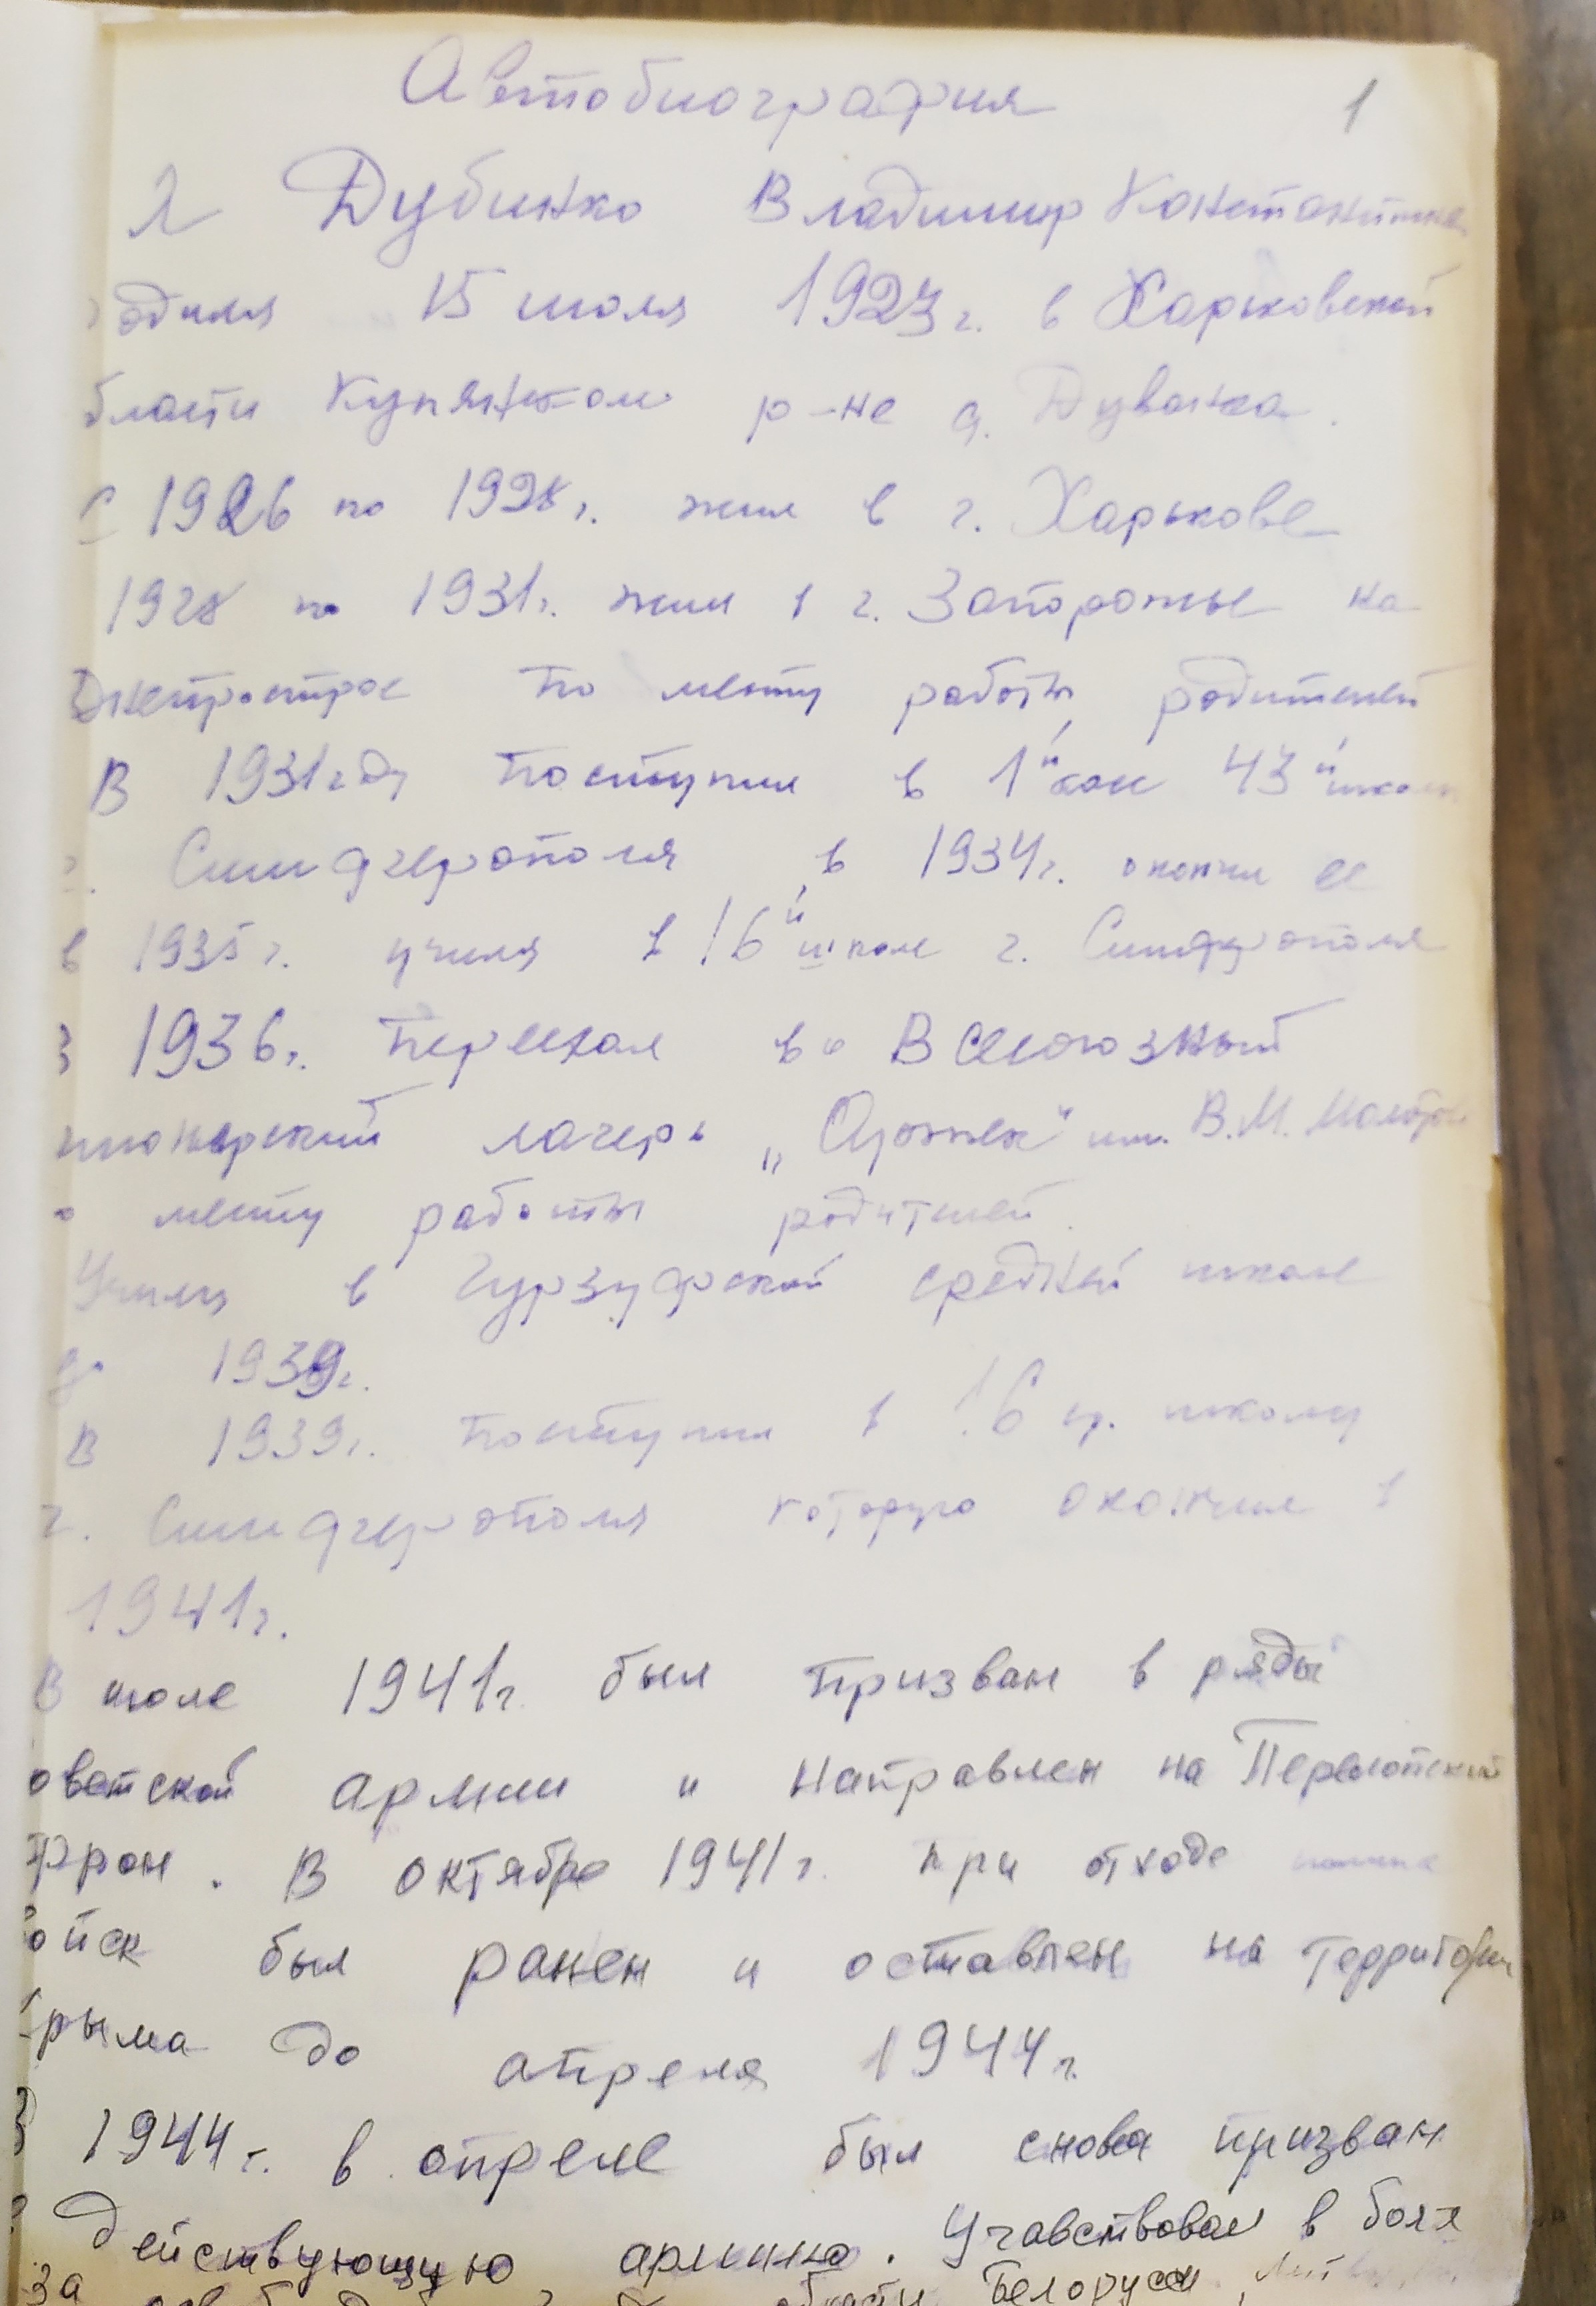 Автобиография
1
Я Дубинко Владимир Константинов
родился 15 июля 1923 г. в Харьковской
бласти Купянском р-не д. Дуванка.
С 1926 по 1928 г. жил в г. Харькове
1928 по 1931 г. жил в г. Запорожье на
Днепрострое по месту работы родителей
В 1931 году поступил в 1й клас 43й школы
г. Симферополя, в 1934 г. окончил ее
в 1935 г. учился в 16й школе г. Симферополя
В 1936 г. переехал во Всесоюзный
пионерский лагерь „Артек" им. В.М. Молотова
о месту работы родителей.
Учился в Гурзуфской средней школе
до 1939 г.
В 1939 г. поступил в 16 ср. школу
г. Симферополя которую окончил в
1941 г.
В июле 1941 г. был призван в ряды
оветской армии и направлен на Перекопский
фрон. В октябре 1941 г. при отходе
ойск был ранен и оставлен на территории
рыма до апреля 1944 г.
В 1944 г. в апреле был снова призван
в действующую армию. Учавствовал в боях
за области Белоруссии,